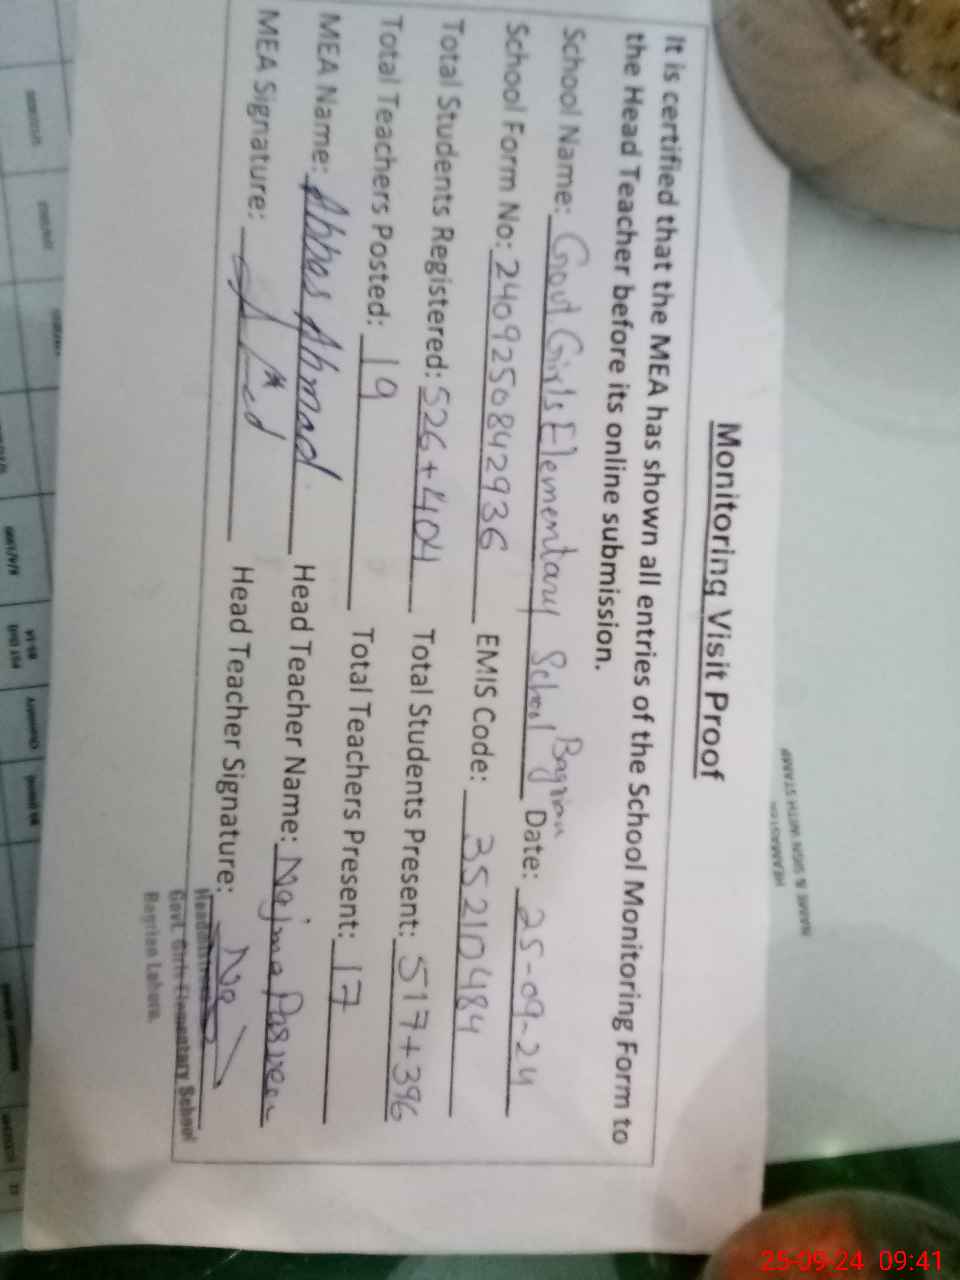 Monitoring Visit Proof
It is certified that the MEA has shown all entries of the School Monitoring Form to
the Head Teacher before its online submission.
School Name: Govt Girls Elementary School Bagrian Date: 25-09-24
School Form No: 2409250842936 EMIS Code: 35210484
Total Students Registered: 526+404 Total Students Present: 517+396
Total Teachers Posted: 19 Total Teachers Present: 17
MEA Name: Abbas Ahmad Head Teacher Name: Najma Parveen
MEA Signature: Head Teacher Signature:
Govt. Girls Elementary School
Bagrian Lahore.
NAME & SIGN WITH STAMP
25-09-24 09:41